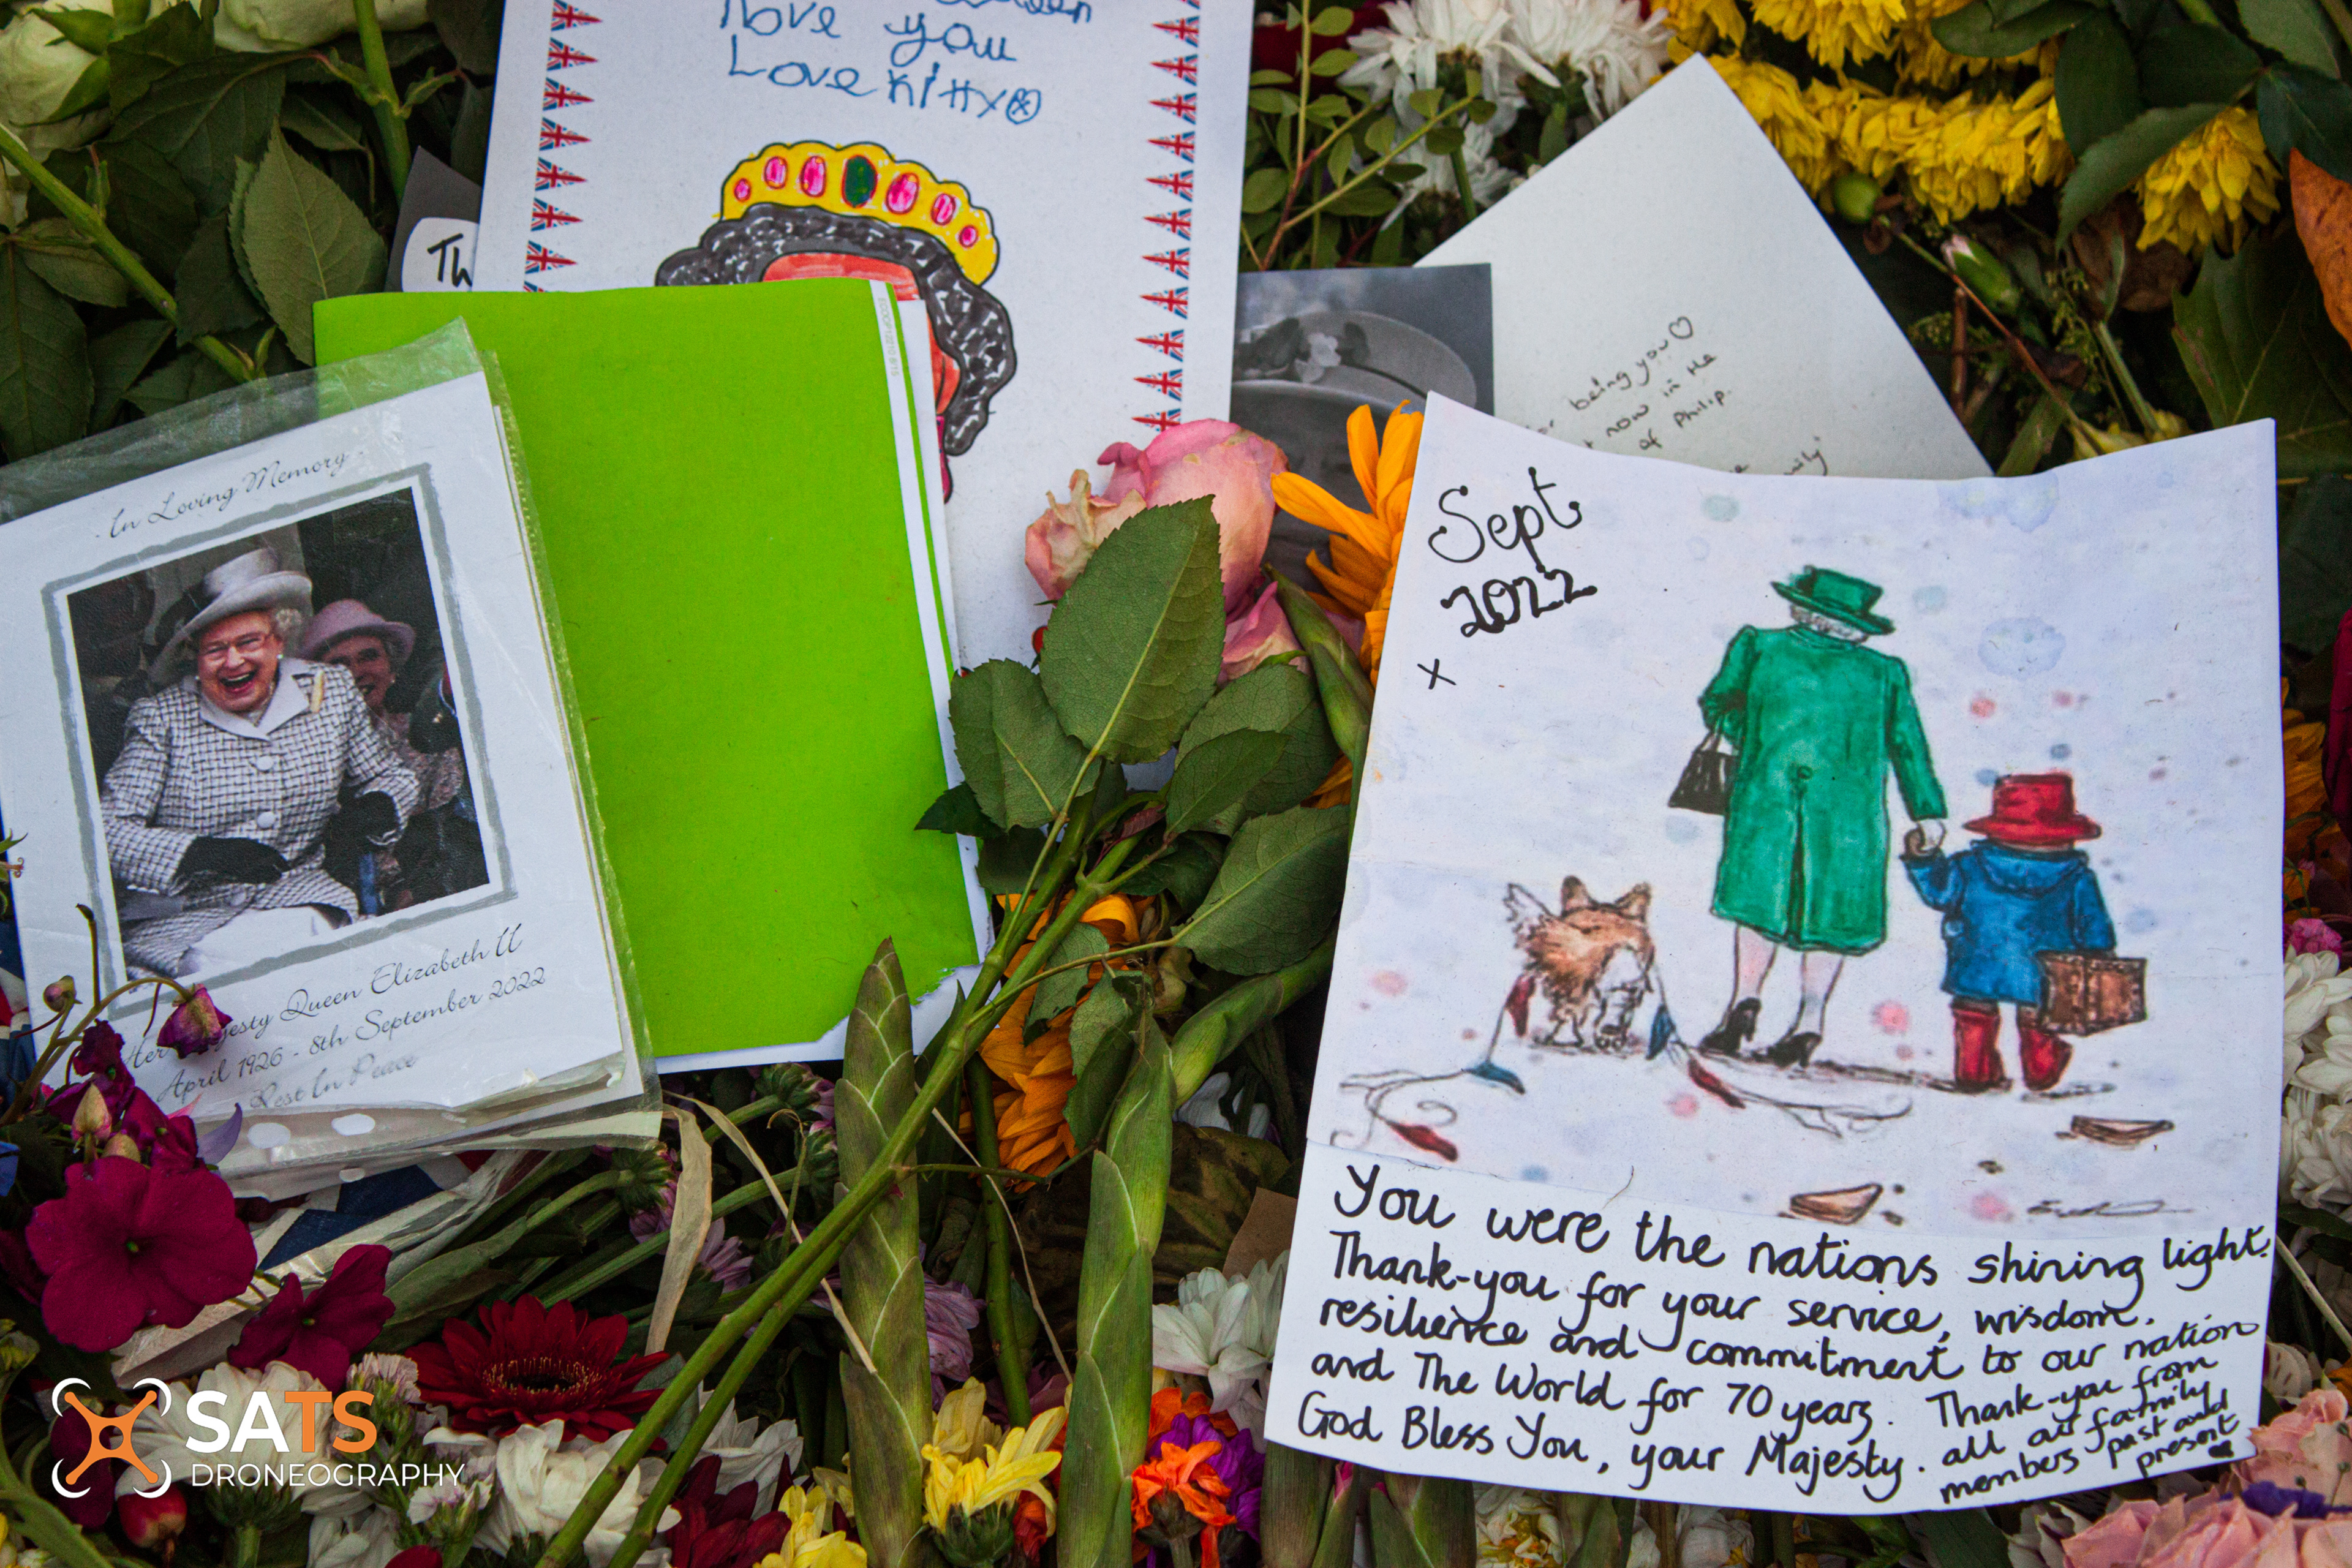 Love you
Love Kitty
Th
being you♡
now in the
of Philip.
In Loving Memory
Queen Elizabeth II
April 1926 - 8th September 2022
Rest In Peace
Sept
2022
x
You were the nations shining light.
Thank-you for your service, wisdom,
resilience and commitment to our nation
and The World for 70 years.
God Bless You, your Majesty.
Thank-you from
all our family
members past and
present ♥
SATS
DRONEOGRAPHY